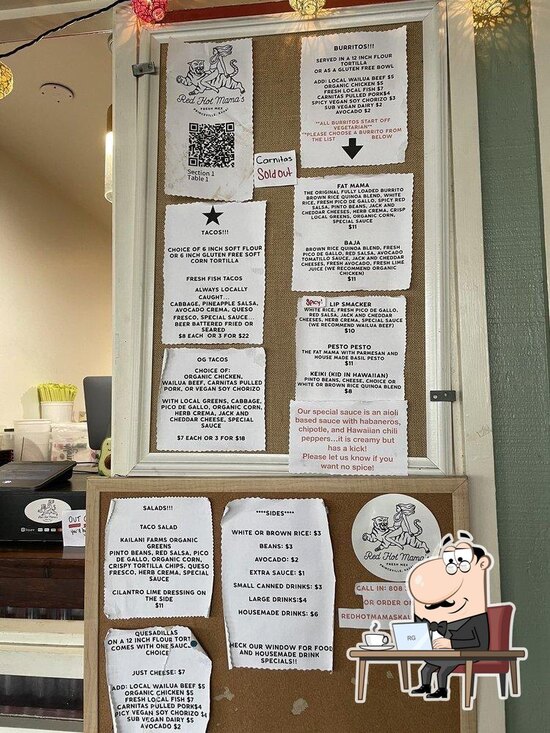 Red Hot Mama's
FRESH MEX
Section 1
Table 1
Carnitas
Sold Out
BURRITOS!!!
SERVED IN A 12 INCH FLOUR
TORTILLA
OR AS A GLUTEN FREE BOWL
ADD: LOCAL WAILUA BEEF $5
ORGANIC CHICKEN $5
FRESH LOCAL FISH $7
CARNITAS PULLED PORK$4
SPICY VEGAN SOY CHORIZO $3
SUB VEGAN DAIRY $2
AVOCADO $2
**ALL BURRITOS START OFF
VEGETARIAN**
**PLEASE CHOOSE A BURRITO FROM
THE LIST BELOW
TACOS!!!
CHOICE OF 6 INCH SOFT FLOUR
OR 6 INCH GLUTEN FREE SOFT
CORN TORTILLA
FRESH FISH TACOS
ALWAYS LOCALLY
CAUGHT...
CABBAGE, PINEAPPLE SALSA,
AVOCADO CREMA, QUESO
FRESCO, SPECIAL SAUCE...
BEER BATTERED FRIED OR
SEARED
$8 EACH OR 3 FOR $22
OG TACOS
CHOICE OF:
ORGANIC CHICKEN,
WAILUA BEEF, CARNITAS PULLED
PORK, OR VEGAN SOY CHORIZO
WITH LOCAL GREENS, CABBAGE,
PICO DE GALLO, ORGANIC CORN,
HERB CREMA, JACK AND
CHEDDAR CHEESE, SPECIAL
SAUCE
$7 EACH OR 3 FOR $18
FAT MAMA
THE ORIGINAL FULLY LOADED BURRITO
BROWN RICE QUINOA BLEND, WHITE
RICE, FRESH PICO DE GALLO, SPICY RED
SALSA, PINTO BEANS, JACK AND
CHEDDAR CHEESES, HERB CREMA, CRISP
LOCAL GREENS, ORGANIC CORN,
SPECIAL SAUCE
$11
BAJA
BROWN RICE QUINOA BLEND, FRESH
PICO DE GALLO, RED SALSA, AVOCADO
TOMATILLO SAUCE, JACK AND CHEDDAR
CHEESES, FRESH AVOCADO, FRESH LIME
JUICE (WE RECOMMEND ORGANIC
CHICKEN)
$11
Spicy! LIP SMACKER
WHITE RICE, FRESH PICO DE GALLO,
RED SALSA, JACK AND CHEDDAR
CHEESES, HERB CREMA, SPECIAL SAUCE
(WE RECOMMEND WAILUA BEEF)
$10
PESTO PESTO
THE FAT MAMA WITH PARMESAN AND
HOUSE MADE BASIL PESTO
$11
KEIKI (KID IN HAWAIIAN)
PINTO BEANS, CHEESE, CHOICE OR
WHITE OR BROWN RICE QUINOA BLEND
$8
Our special sauce is an aioli
based sauce with habaneros,
chipotle, and Hawaiian chili
peppers...it is creamy but
has a kick!
Please let us know if you
want no spice!
SALADS!!!
TACO SALAD
KAILANI FARMS ORGANIC
GREENS
PINTO BEANS, RED SALSA, PICO
DE GALLO, ORGANIC CORN,
CRISPY TORTILLA CHIPS, QUESO
FRESCO, HERB CREMA, SPECIAL
SAUCE
$11
CILANTRO LIME DRESSING ON
THE SIDE
QUESADILLAS
ON A 12 INCH FLOUR TOR
COMES WITH ONE SAUC
CHOIC
JUST CHEESE: $7
ADD: LOCAL WAILUA BEEF $5
ORGANIC CHICKEN $5
FRESH LOCAL FISH $7
CARNITAS PULLED PORK $4
SPICY VEGAN SOY CHORIZO $4
SUB VEGAN DAIRY $5
AVOCADO $2
****SIDES****
WHITE OR BROWN RICE: $3
BEANS: $3
AVOCADO: $2
EXTRA SAUCE: $1
SMALL CANNED DRINKS: $3
LARGE DRINKS:$4
HOUSEMADE DRINKS: $6
CHECK OUR WINDOW FOR FOOD
AND HOUSEMADE DRINK
SPECIALS!!
Red Hot Mama's
CALL IN: 808
OR ORDER O
REDHOTMAMASKAU
RG
OUT